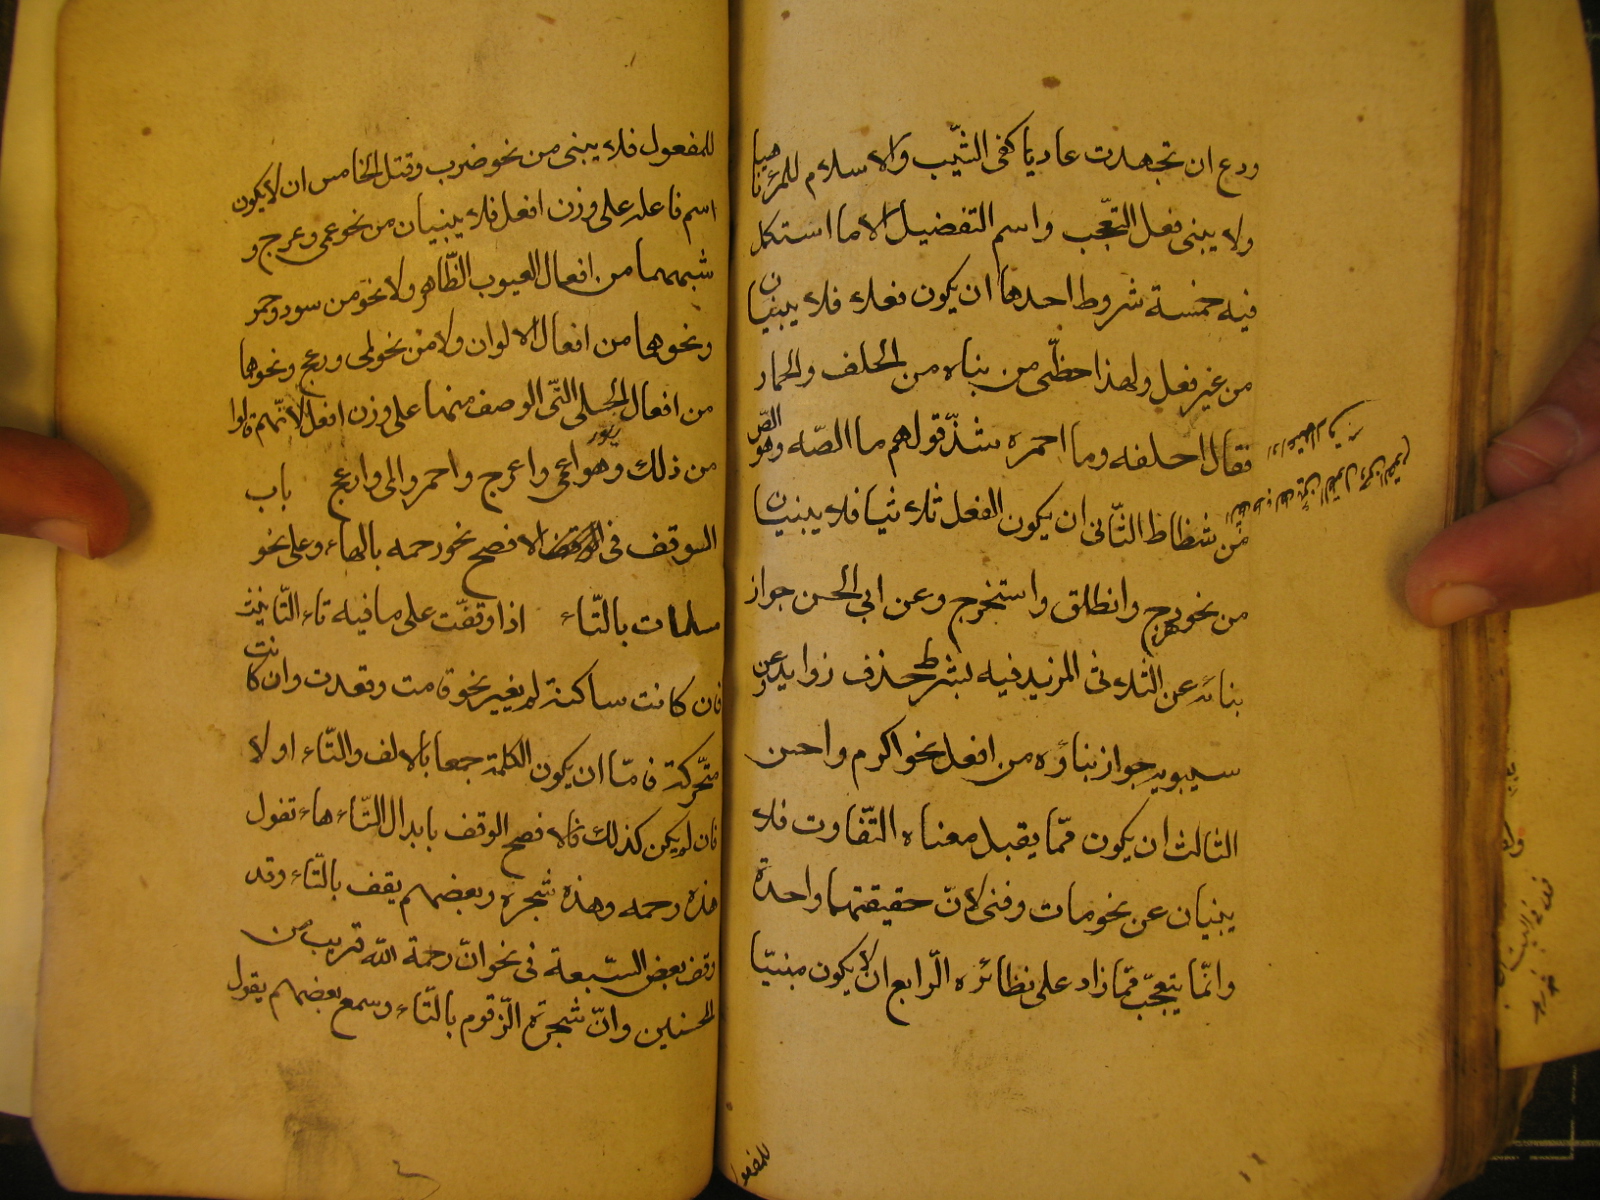 ودع ان تجهدت عاديا كفى الشيب والاسلام للمرء ناهيا
ولا يبنى فعل التعجب واسم التفضيل الا ما استكمل
فيه خمسة شروط احدها ان يكون فعلا فلا يبنيان
من غير فعل ولهذا خطئ من بناه من الحلف والحمار
فقال احلفه وما احمره شذ قولهم ما الصه وهو الص
من شظاظ الثانى ان يكون الفعل ثلاثيا فلا يبنيان
من نحو دحرج وانطلق واستخرج وعن ابى الحسن جواز
بنائه عن الثلاثى المزيد فيه بشرط حذف زوايده وعن
سيبويه جواز بناؤه من افعل نحو اكرم واحسن
الثالث ان يكون مما يقبل معناه التفاوت فلا
يبنيان عن نحو مات وفنى لان حقيقتهما واحدة
وانما يتعجب مما زاد على نظائره الرابع ان لا يكون مبنيا
للمفعول
للمفعول فلا يبنى من نحو ضرب وقتل الخامس ان لا يكون
اسم فاعله على وزن افعل فلا يبنيان من نحو عمى وعرج و
شبههما من افعال العيوب الظاهر ولا نحو من سود وحمر
ونحوها من افعال الالوان ولا من نحو لمى ودعج ونحوها
من افعال الحلى التى الوصف منها على وزن افعل لانهم قالوا
من ذلك وهو اعمى واعرج واحمر والمى وادعج باب
الوقف فى الافصح نحو رحمه بالهاء وعلى نحو
مسلمات بالتاء اذا وقفت على ما فيه تاء التانيث
فان كانت ساكنة لم يغير نحو قامت وقعدت وان كانت
متحركة فاما ان يكون الكلمة جمعا بالالف والتاء او لا
فان لم يكن كذلك فالافصح الوقف بابدال التاء هاء تقول
هذه رحمه وهذه شجره وبعضهم يقف بالتاء وقد
وقف بعض السبعة فى نحو ان رحمة الله قريب من
المحسنين وان شجرة الزقوم بالتاء وسمع بعضهم يقول